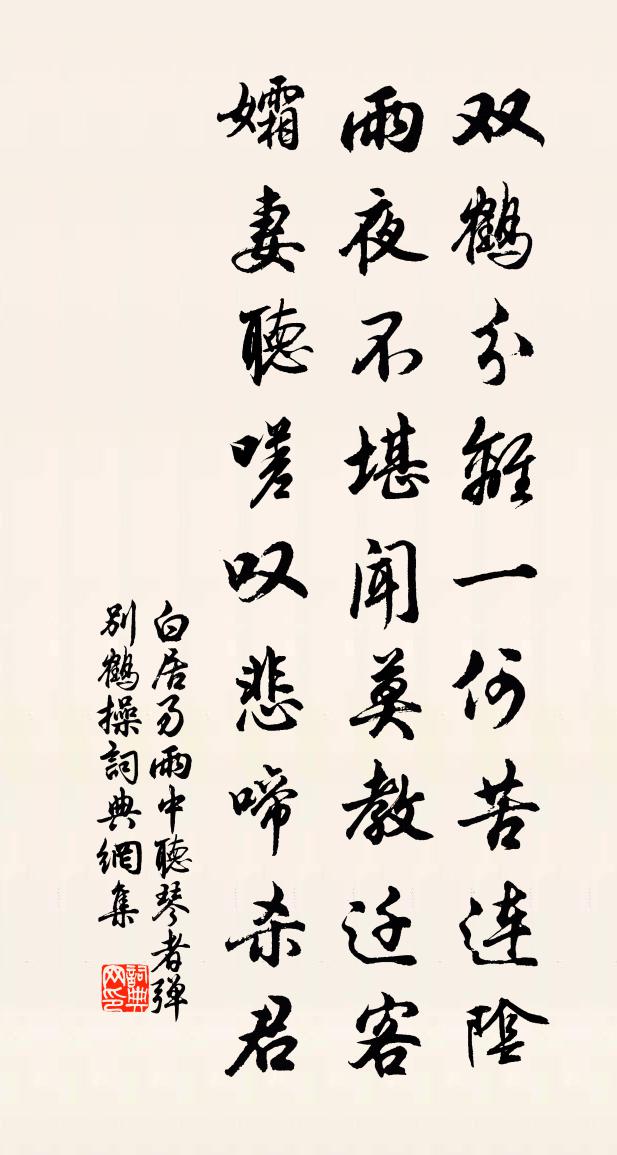 双鹤分離一何苦連陰
雨夜不堪闻莫教迁客
孀妻聽嗟叹悲啼杀君
白居易雨中聽琴者弹
别鹤操詞典網集
詞典
网印